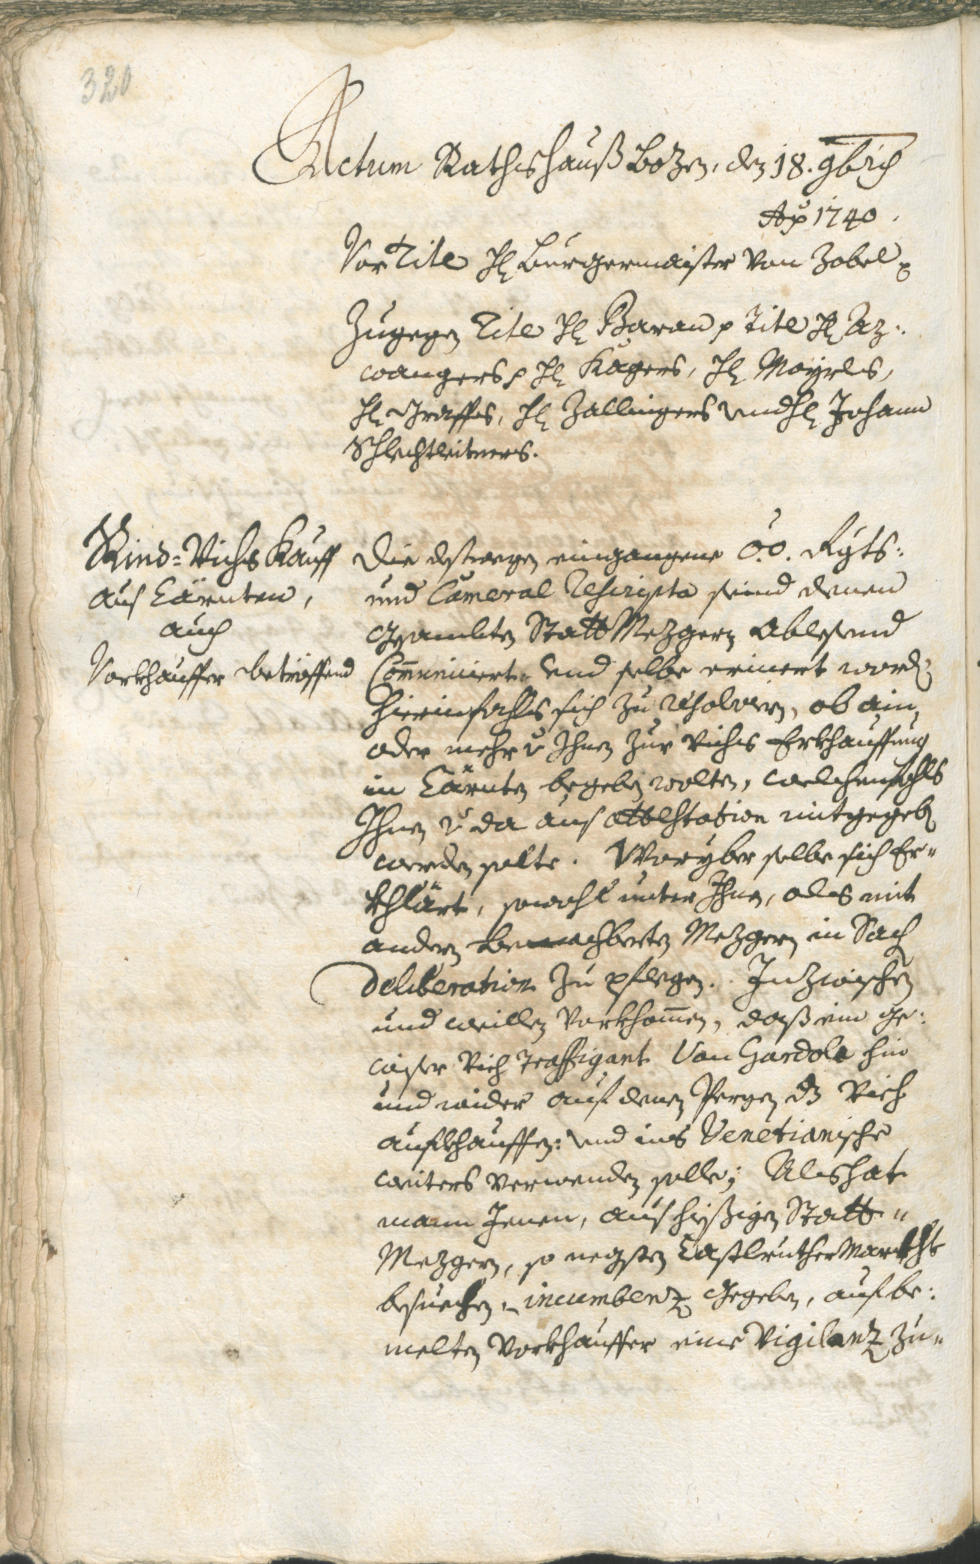 320
Actum Rathshauß Bozen, den 18. 9bris
Ao 1740.
Vor Tite H: Burgermaister von Zobel p
Zugegen Tite H: Baran p Tite H: Az-
wangers p H: Kagers, H: Mayrls,
H: Graffs, H: Zallingers und H: Johann
Schlechtleitners.
Rind-Vichs Kauff
aus Cärnten,
auch
Vorkhauffer betreffend
Die destwegen eingangene O:Ö. Rgts:
und Cameral Rescripta seind denen
gesambten Statt Mezgern ablesend
Com̄uniciert, und selbe erinert word:
hierinfahls sich zu resolviern, ob ain
oder mehr v Ihnen zur Vichs Erkhauffung
in Cärnten begeben wolten, welchenfahls
Ihnen v da aus attestation mitgegeben
werden solte. Woryber selbe sich Er-
khlärt, sowohl unter Ihnen, als mit
andern benachberten Mezgern in Sach
deliberation zu pflegen. Inzwischen
und weillen vorkhom̄en, daß ein ge-
wiser Vich Traffigant von Gardola hin
und wider auf denen Pergen dz Vieh
aufkhauffen: und ins Venetianische
weiters verwenden solle; Als hat
mann Jenen, aus hießigen Statt-
Mezgern, so negsten Castlruther Markht
besuechen, incumbenz gegeben, auf be-
melten Vorkhauffer eine Vigilanz zu-